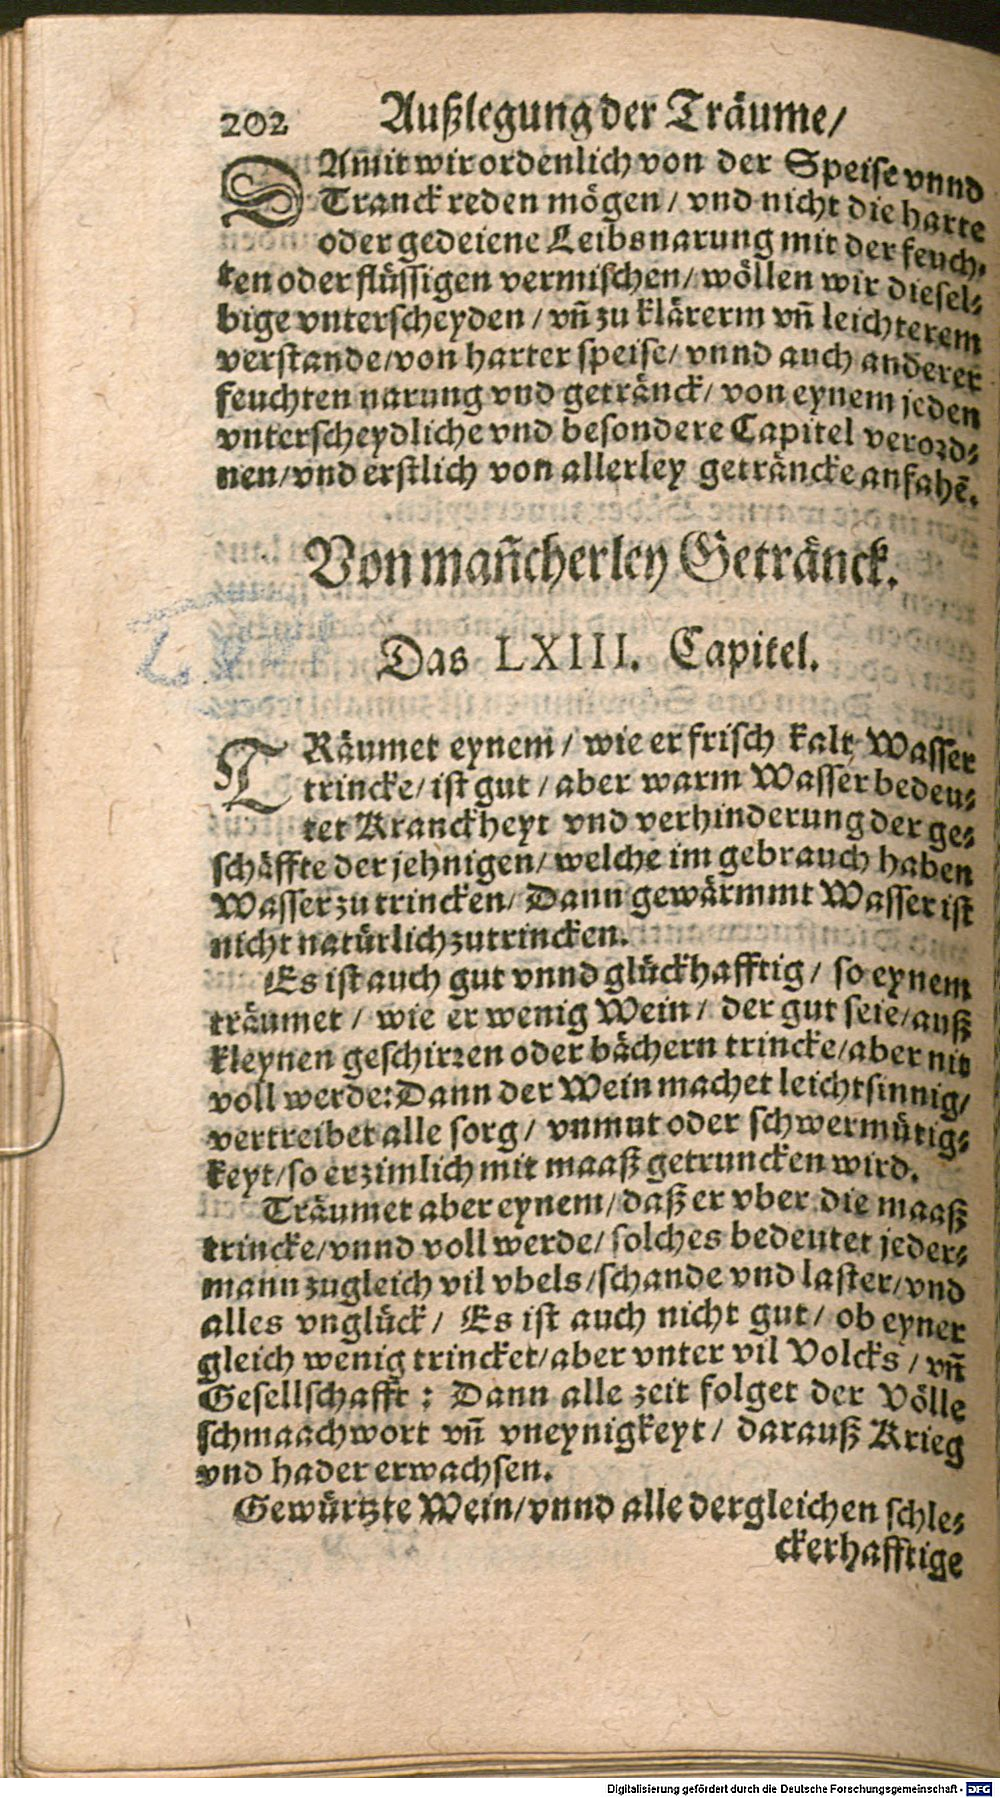 202 Außlegung der Träume/
DAmit wir ordenlich von der Speise vnnd
Tranck reden mögen/ vnd nicht die harte
oder gedeiene Leibsnarung mit der feuch-
ten oder flüssigen vermischen/ wöllen wir diesel-
bige vnterscheyden / vñ zu klärerm vñ leichterem
verstande/von harter speise/ vnnd auch anderer
feuchten narung vnd getränck/ von eynem jeden
vnterscheydliche vnd besondere Capitel verord-
nen/vnd erstlich von allerley geträncke anfahē.
Von mañcherley Getränck.
Das LXIII. Capitel.
TRäumet eynem / wie er frisch kalt Wasser
trincke/ ist gut / aber warm Wasser bedeu-
tet Kranckheyt vnd verhinderung der ge-
schäffte der jehnigen/ welche im gebrauch haben
Wasser zu trincken/ Dann gewärmmt Wasser ist
nicht natürlich zutrincken.
Es ist auch gut vnnd glückhafftig / so eynem
träumet / wie er wenig Wein / der gut seie/auß
kleynen geschirren oder bächern trincke/aber nit
voll werde: Dann der Wein machet leichtsinnig/
vertreibet alle sorg / vnmut oder schwermütig-
keyt/so er zimlich mit maaß getruncken wird.
Träumet aber eynem/daß er vber die maaß
trincke/vnnd voll werde/ solches bedeutet jeder-
mann zugleich vil vbels/schande vnd laster/vnd
alles vnglück / Es ist auch nicht gut / ob eyner
gleich wenig trincket/aber vnter vil Volcks / vñ
Gesellschafft : Dann alle zeit folget der Völle
schmaachwort vñ vneynigkeyt / darauß Krieg
vnd hader erwachsen.
Gewürtzte Wein/vnnd alle dergleichen schle-
ckerhafftige
Digitalisierung gefördert durch die Deutsche Forschungsgemeinschaft - DFG